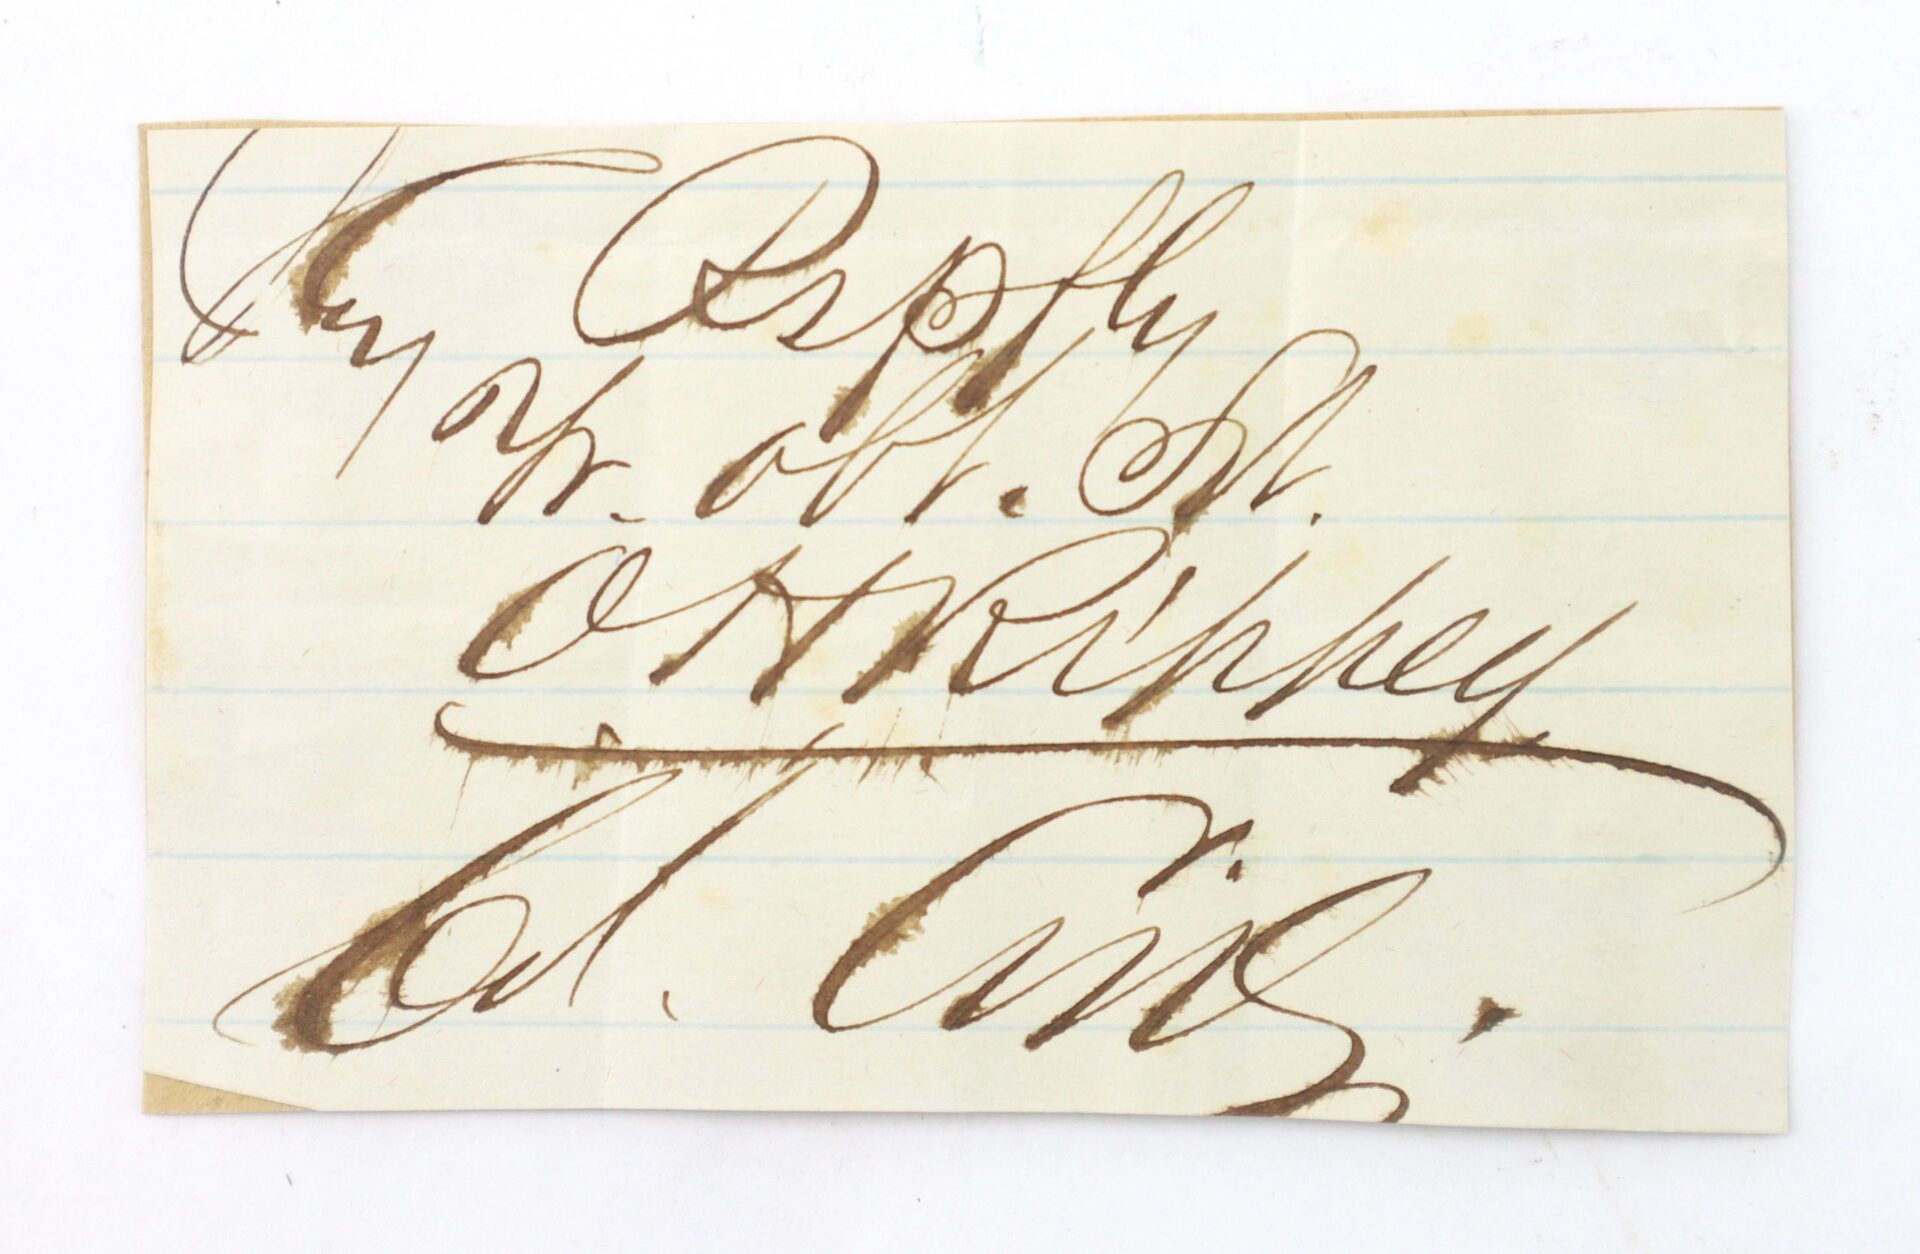 Very Respfly
Yr. obt. St.
O H Rippey
Col. Cmg.